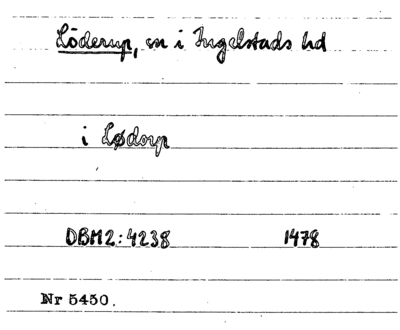 Löderup, sn i Ingelstads hd
i Lødorp
DBM2:4238 1478
Nr 5450.